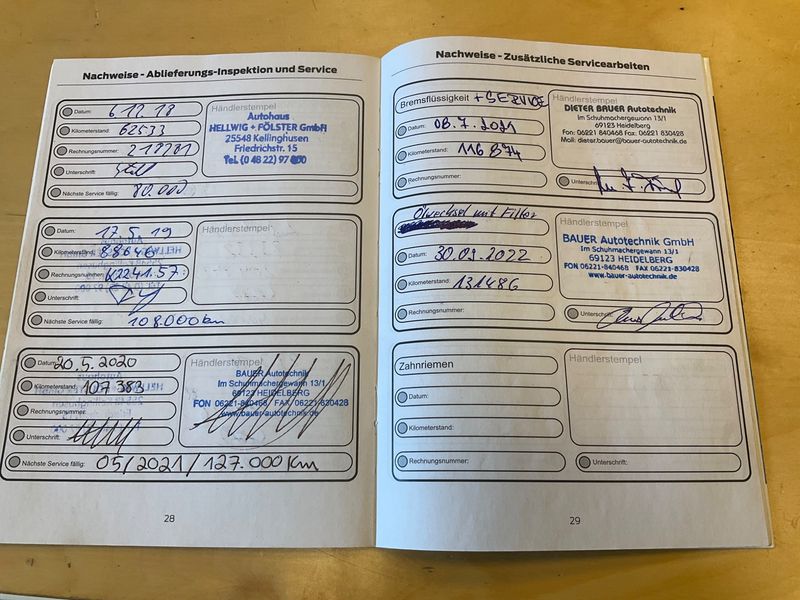 Nachweise - Ablieferungs-Inspektion und Service
Datum: 6.12.18
Kilometerstand: 62533
Rechnungsnummer:
Unterschrift:
Nächste Service fällig: 80.000
Händlerstempel
Autohaus
HELLWIG + FÖLSTER GmbH
25548 Kellinghusen
Friedrichstr. 15
Tel. (0 48 22) 97
Datum: 17.5.19
Kilometerstand: 88646
Rechnungsnummer:
Unterschrift:
Nächste Service fällig: 108.000km
Händlerstempel
Datum: 20.5.2020
Kilometerstand: 107 383
Rechnungsnummer:
Unterschrift:
Nächste Service fällig: 05/2021/127.000 Km
Händlerstempel
BAUER Autotechnik
Im Schuhmachergewann 13/1
69123 HEIDELBERG
FON 06221-840468 FAX 06221-830428
www.bauer-autotechnik.de
28
Nachweise - Zusätzliche Servicearbeiten
Bremsflüssigkeit + SERVICE
Datum: 08.7.2021
Kilometerstand: 116 874
Rechnungsnummer:
Händlerstempel
DIETER BAUER Autotechnik
Im Schuhmachergewann 13/1
69123 Heidelberg
Fon: 06221 840468 Fax: 06221 830428
Mail: dieter.bauer@bauer-autotechnik.de
Unterschrift:
Ölwechsel mit Filter
Datum: 30.09.2022
Kilometerstand: 131486
Rechnungsnummer:
Händlerstempel
BAUER Autotechnik GmbH
Im Schuhmachergewann 13/1
69123 HEIDELBERG
FON 06221-840468 FAX 06221-830428
www.bauer-autotechnik.de
Unterschrift:
Zahnriemen
Datum:
Kilometerstand:
Rechnungsnummer:
Händlerstempel
Unterschrift:
29